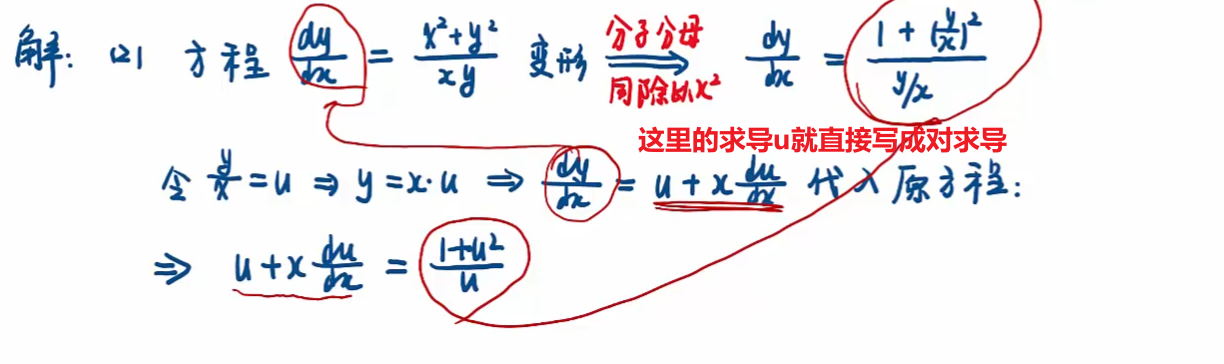 解: (2) 方程 dy/dx = x²+y²/xy 变形 分子分母同除以x² ⟹ dy/dx = 1+(y/x)²/y/x
这里的求导u就直接写成对求导
令 y/x = u ⇒ y = x·u ⇒ dy/dx = u + x du/dx 代入原方程:
⇒ u + x du/dx = 1+u²/u